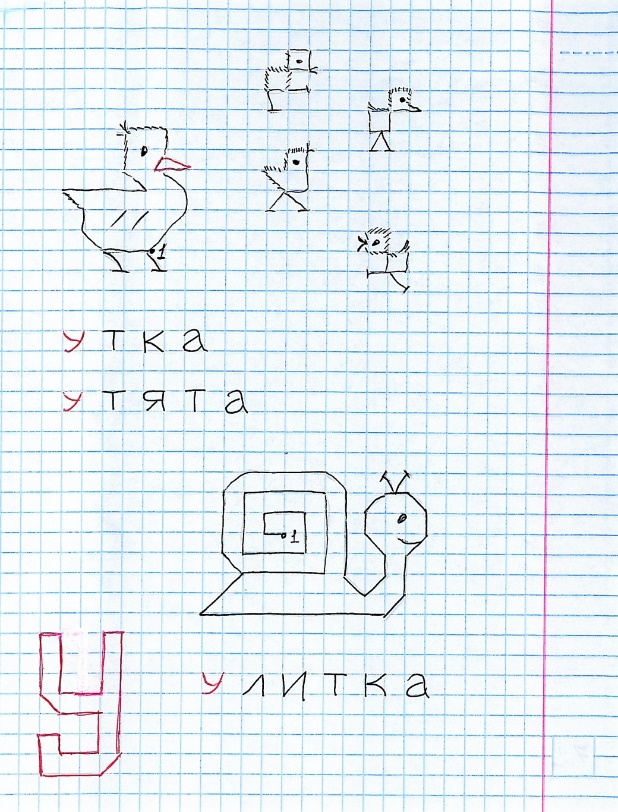 1
утка
утята
1
У
улитка